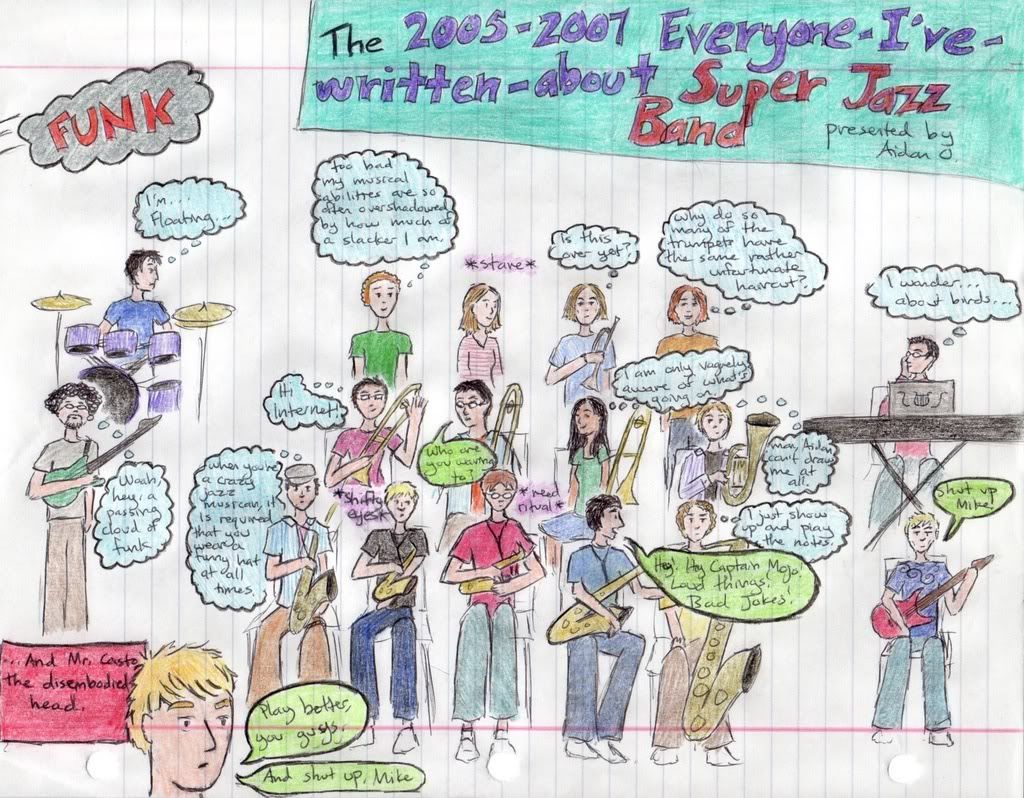 The 2005-2007 Everyone-I've-
written-about Super Jazz
Band
presented by
Aidan O.
FUNK
I'm...
Floating...
too bad
my musical
abilities are so
often overshadowed
by how much of
a slacker I am.
*stare*
is this
over yet?
why do so
many of the
trumpets have
the same rather
unfortunate
haircut?
I wonder...
about birds...
Hi
Internet!
Who are
you waving
to?
I am only vaguely
aware of what's
going on.
man, Aidan
can't draw
me at
all.
Woah
hey, a
passing
cloud of
funk.
when you're
a crazy
jazz
musician, it
is required
that you
wear a
funny hat
at all
times.
*shifty
eyes*
*reed
ritual*
Hey. Hey Captain Mojo.
Loud things.
Bad Jokes!
I just show
up and play
the notes.
Shut up
Mike!
...And Mr. Casto
the disembodied
head.
Play better,
you guys.
And shut up, Mike